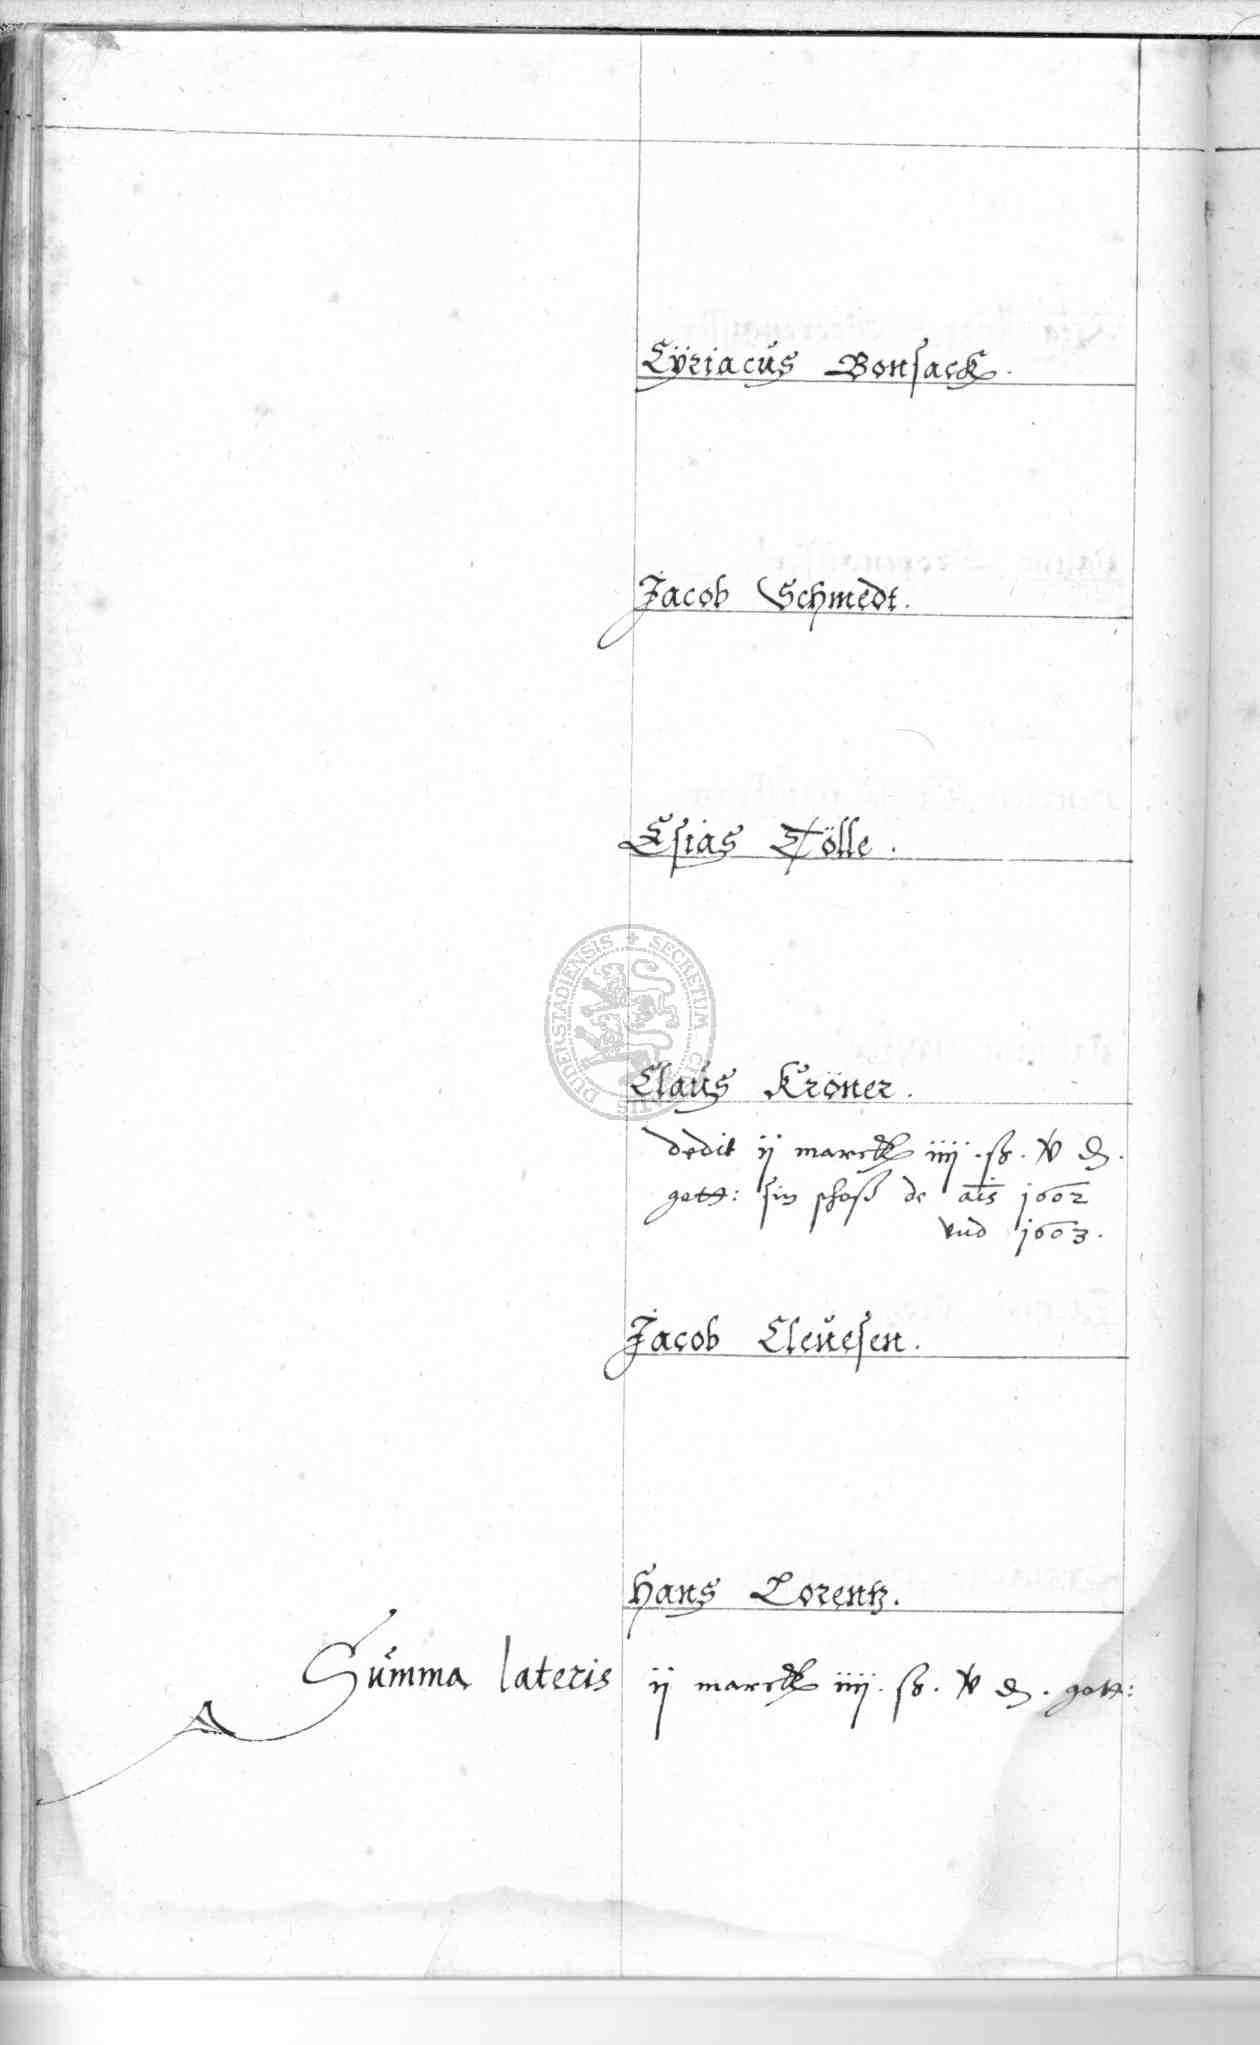 Cÿriacus Bonsack.
Jacob Schmedt.
Esias Tölle.
Claus Kröner.
dedit ij marck iiij ß. v ₰.
gott: sin schoß de aīs 1602
vnd 1603.
Jacob Clevesen.
Hans Lorentz.
Summa lateris ij marck iiij. ß. v ₰. gott:
DUDERSTADIENSIS + SECRETUM CIVITATIS